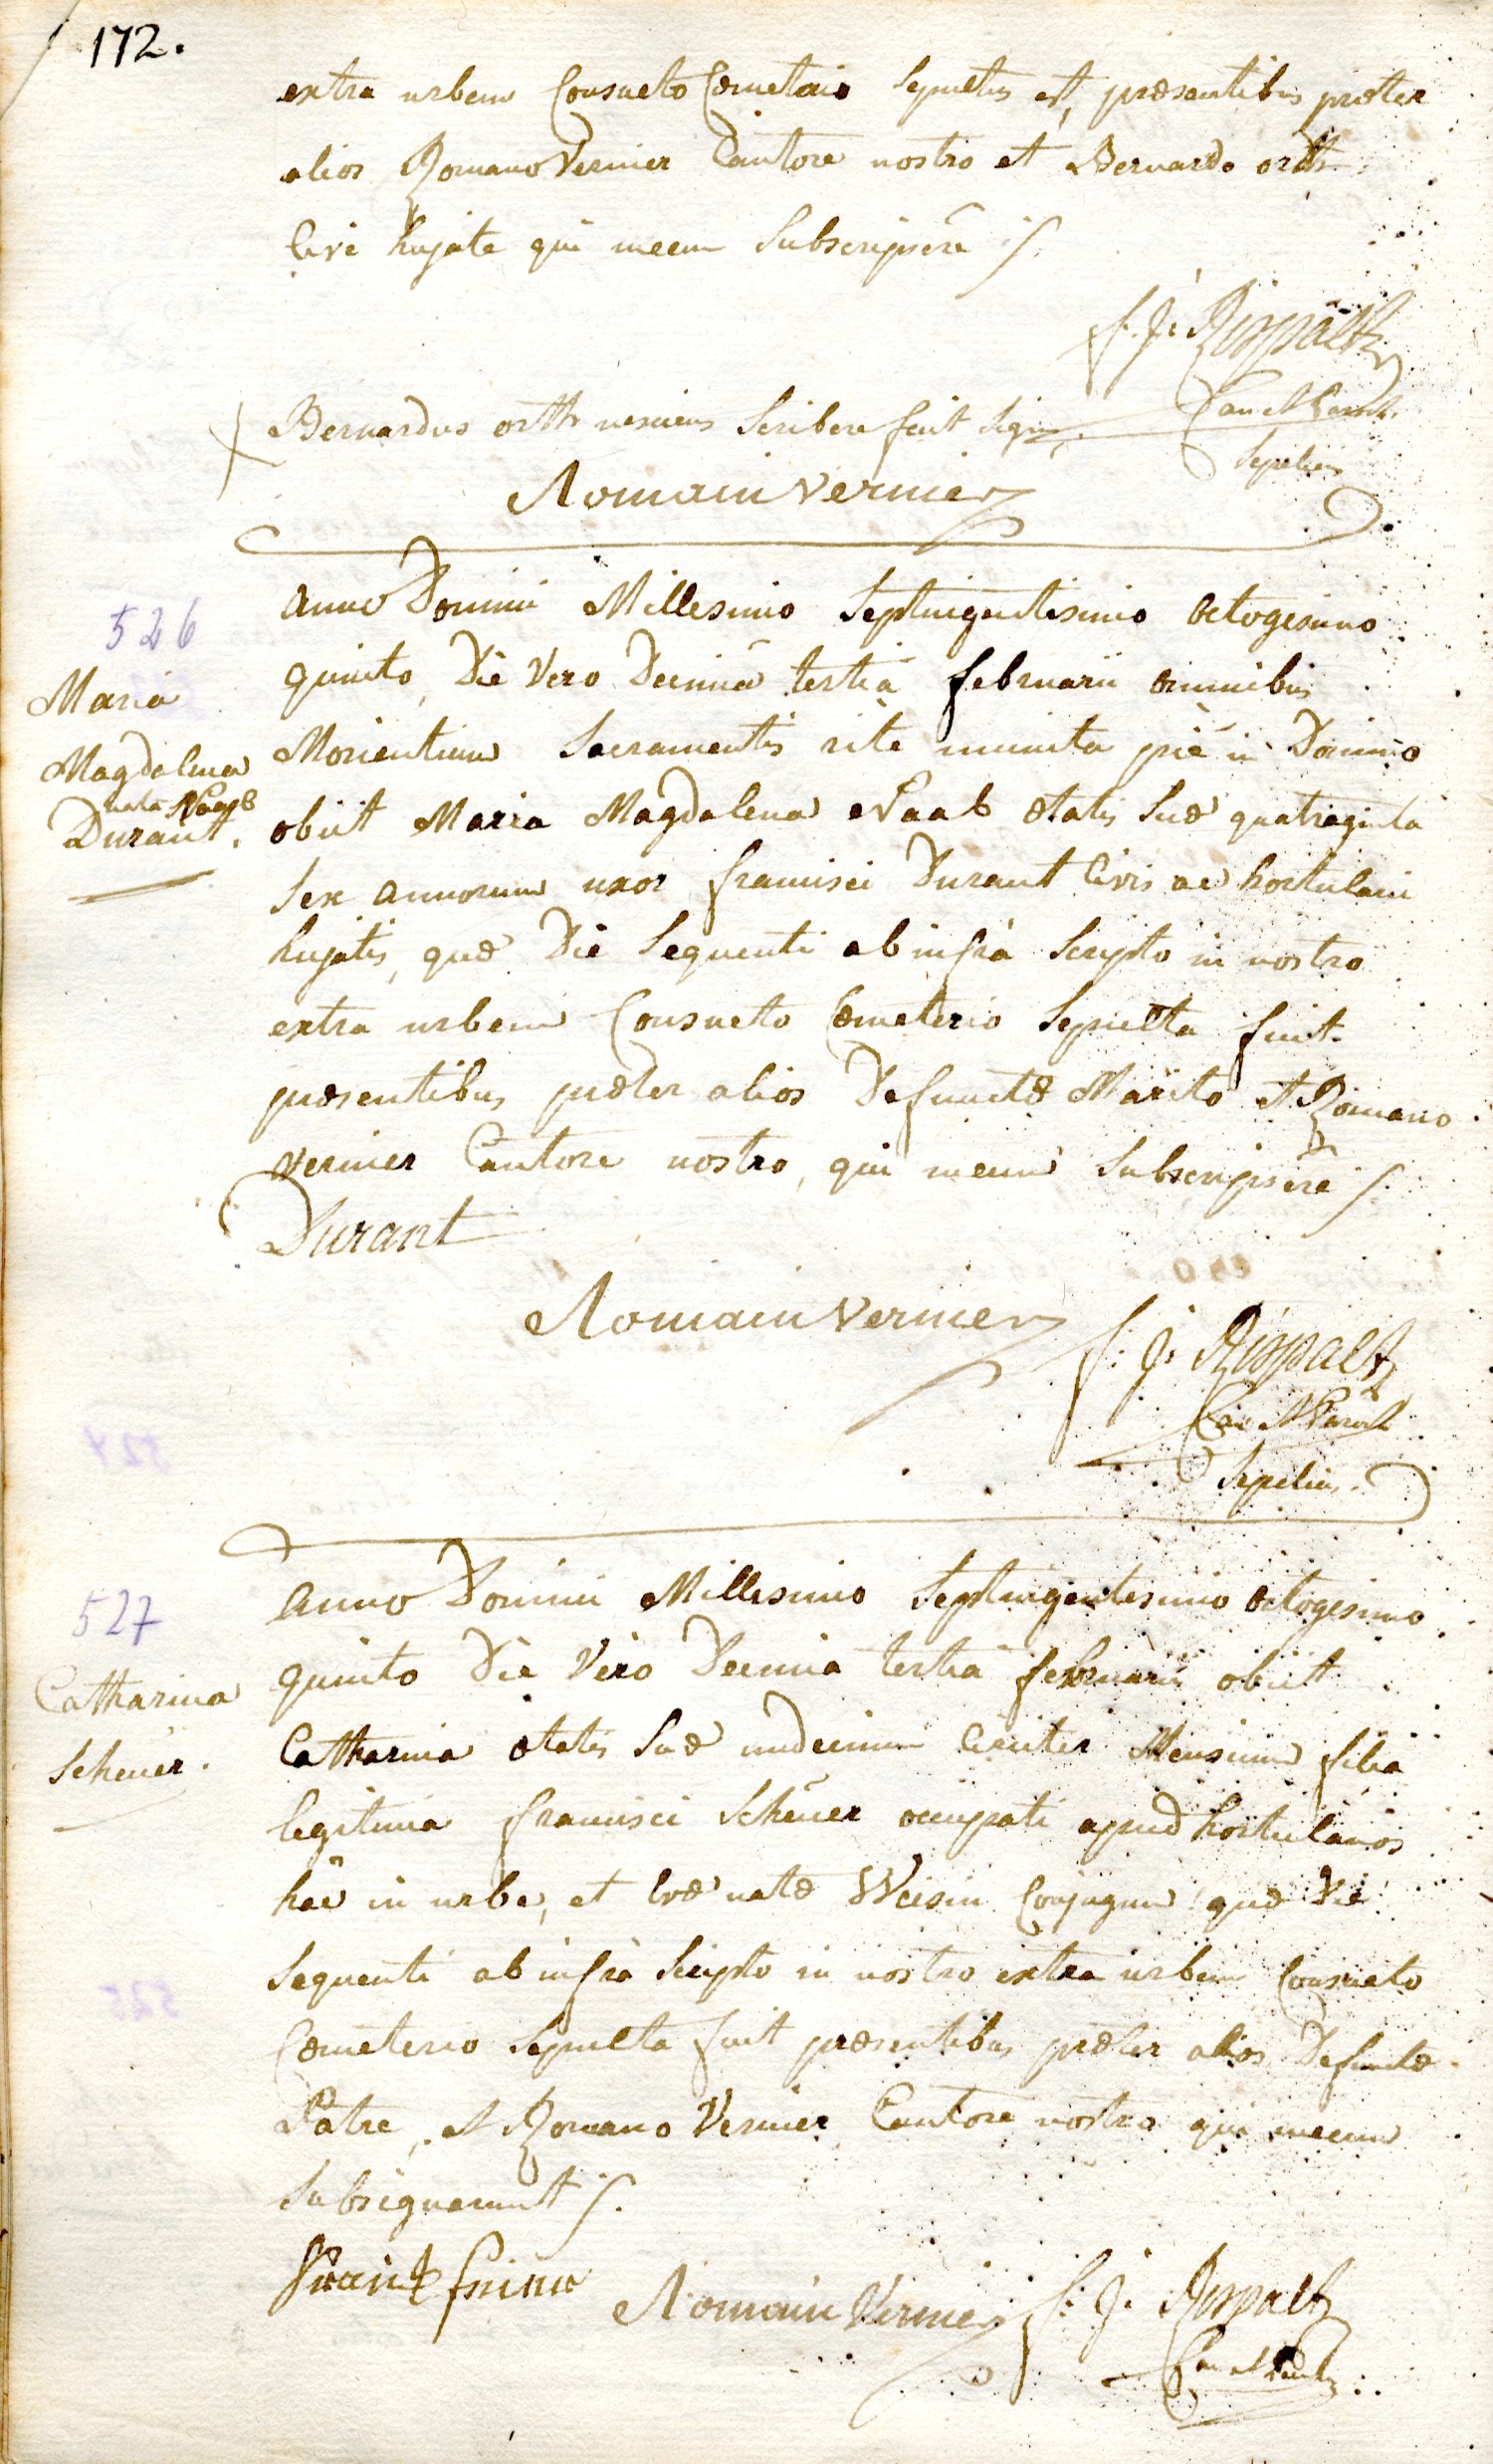 172.
extra urbem Consueto Cœmeterio Sepultus est, præsentibus præter
alios Romano Vernier Cantore nostro et Bernardo orth
Cive hujate qui mecum Subscripsere ./.
f. J. Rispalt
Can et Paroch.
Sepeliens
Bernardus orth nesciens Scribere fecit Signum
Romain vernier
526
Maria
Magdalena
nata Naab
Durant.
Anno Domini Millesimo Septuigentesimo Octogesimo
quinto, Die Vero Decimâ tertiâ februarii omnibus
Morientium Sacramentis ritè munita piè in Domino
obiit Maria Magdalena Naab ætatis Suæ quatraginta
Sex annorum uxor francisci Durant Civis ac hortulani
hujatis, quæ Die Sequenti ab infrà Scripto in nostro
extra urbem Consueto Cœmeterio Sepulta fuit
præsentibus præter alios Defunctæ Marito et Romano
Vernier Cantore nostro, qui mecum Subscripsere ./.
Durant
Romain vernier
f: J: Rispalt
Can et Paroch
Sepeliens.
527
Catharina
Scheuer.
Anno Domini Millesimo Septuigentesimo Octogesimo
quinto Die Vero Decima tertiâ februarii obiit
Catharina ætatis Suæ undecimum Circiter Mensium filia
legitima francisci Scheüer occupati apud hortulanos
hâc in urbe, et Evæ natæ Weisin Conjugum quæ Die
Sequenti ab infrà Scripto in nostro extra urbem Consueto
Cœmeterio Sepulta fuit præsentibus præter alios Defunctæ
Patre, et Romano Vernier Cantore nostro qui mecum
Subsignarunt ./.
Frantz
Romain Vernier
f: J. Rispalt
Can et Paroch